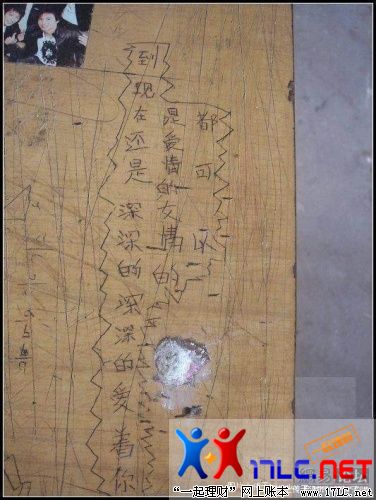 到现在还是深深的深深的爱着你
是爱情的友情的
都可
17LC.NET
“一起理财”网上账本 www.17LC.net